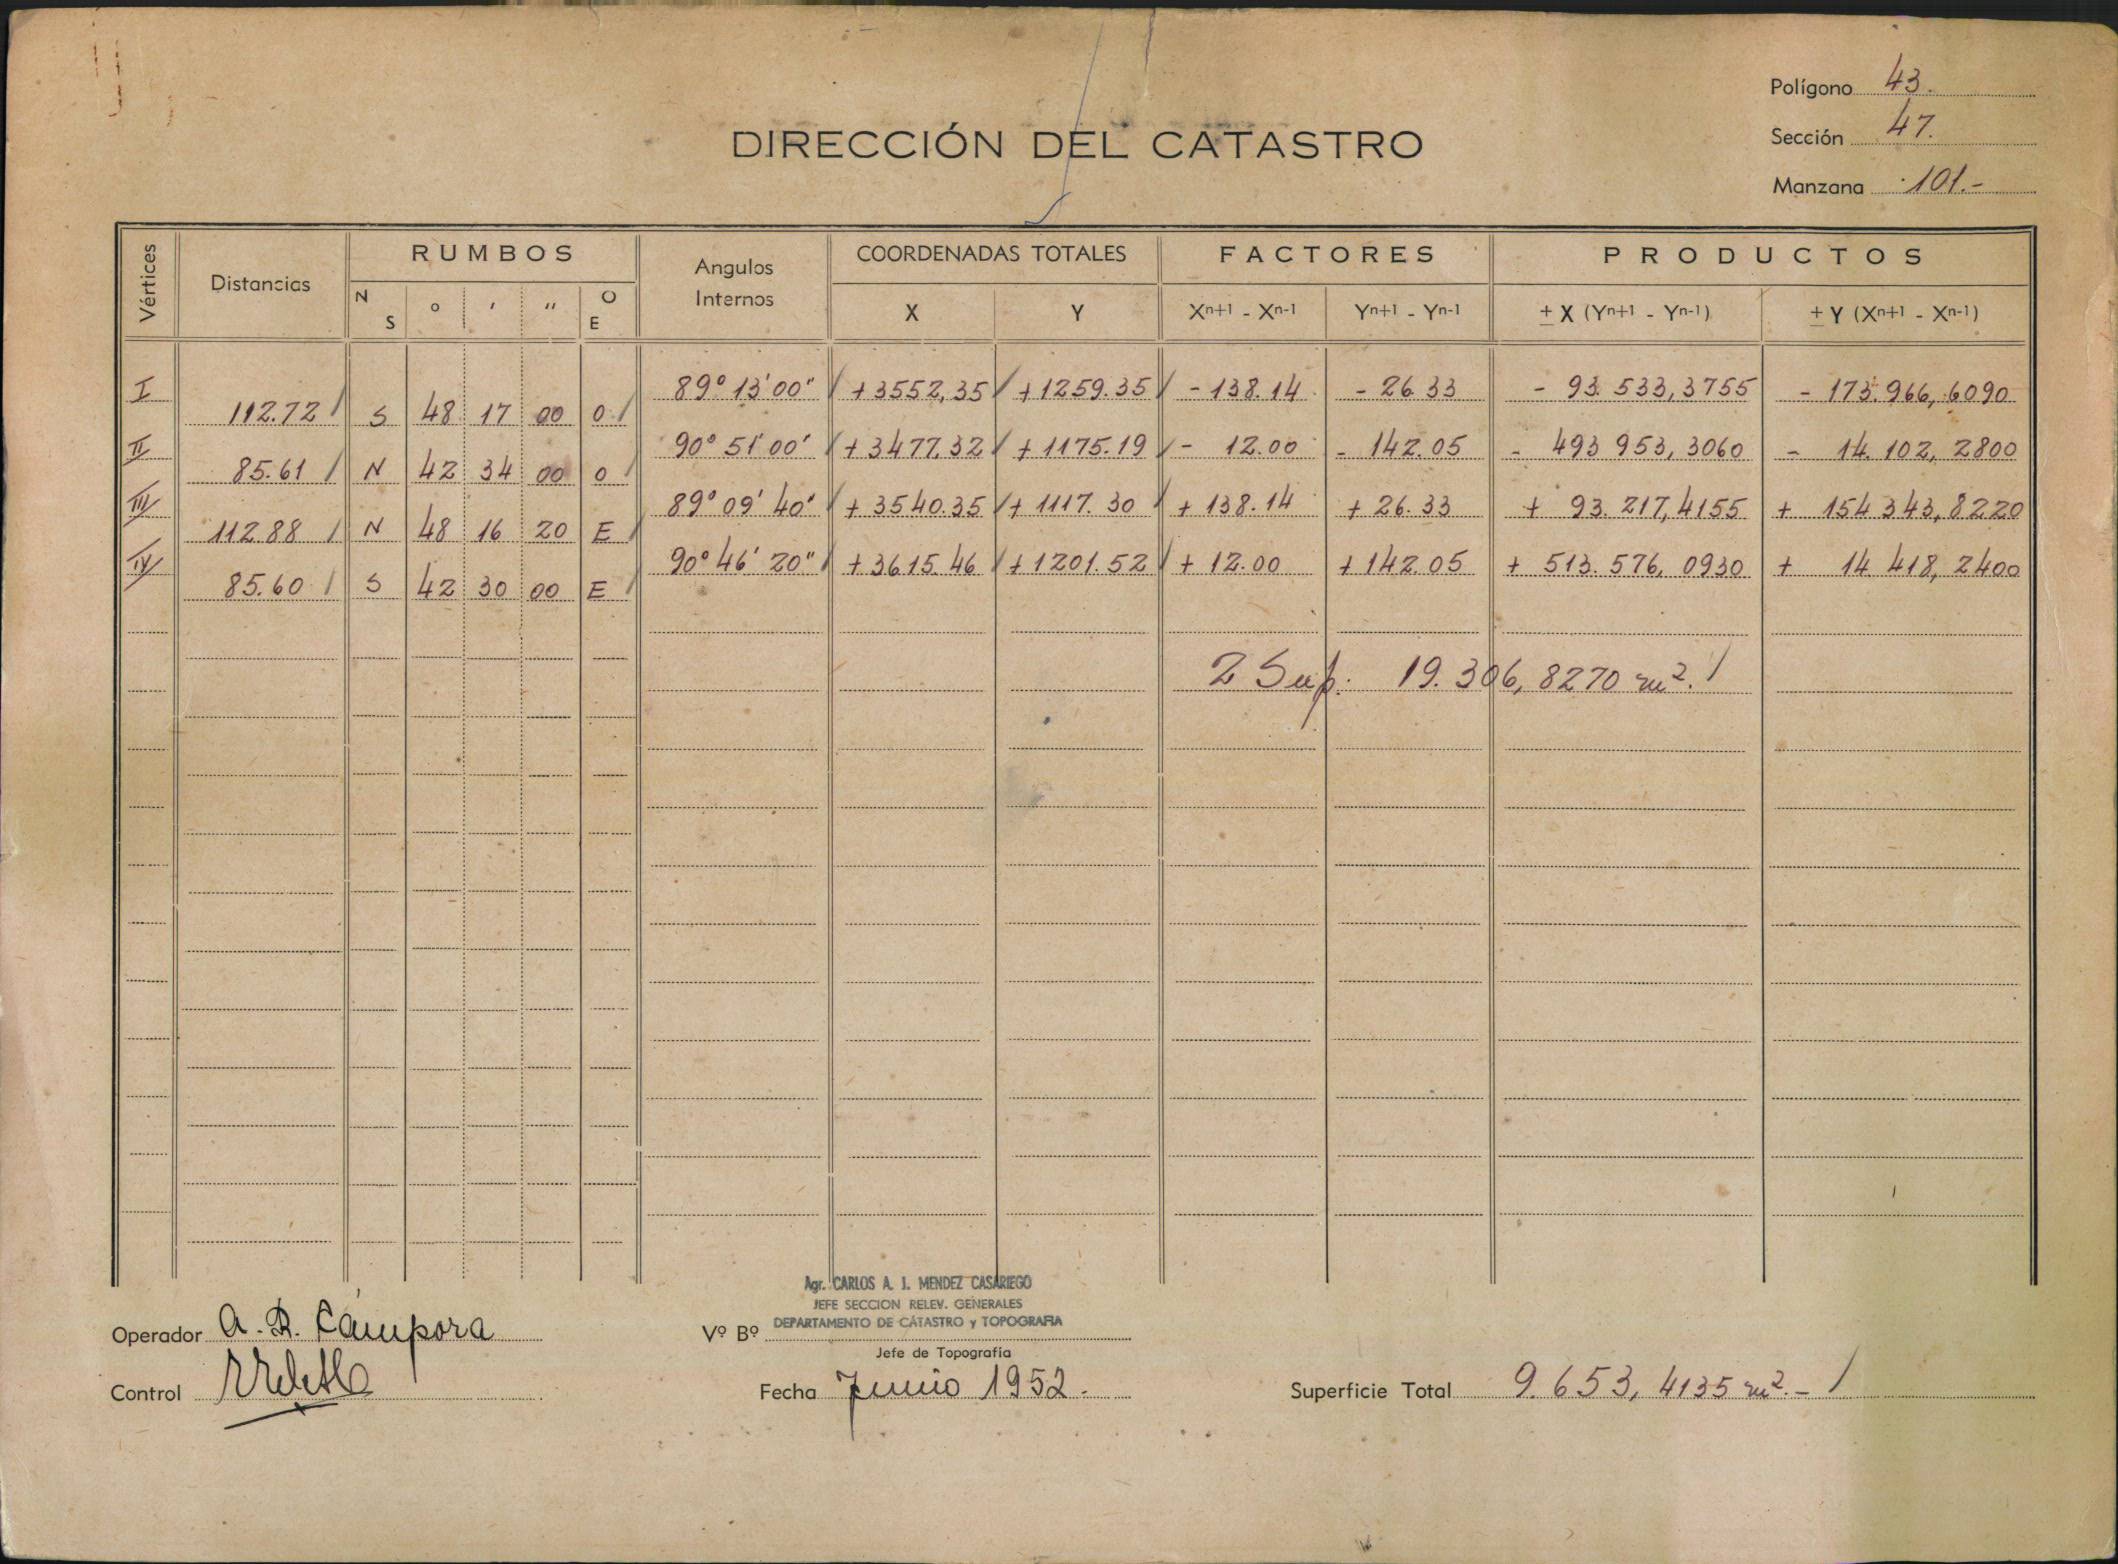 Polígono 43.
DIRECCIÓN DEL CATASTRO
Sección 47.
Manzana 101.-
Vértices Distancias RUMBOS Angulos Internos COORDENADAS TOTALES FACTORES PRODUCTOS
N S ° ' " O E X Y Xn+1 - Xn-1 Yn+1 - Yn-1 ± X (Yn+1 - Yn-1) ± Y (Xn+1 - Xn-1)
I 89° 13' 00" + 3552,35 + 1259.35 - 138.14 - 26.33 - 93.533,3755 - 173.966,6090
112.72 S 48 17 00 O
II 90° 51' 00' + 3477.32 + 1175.19 - 12.00 - 142.05 - 493 953,3060 - 14.102,2800
85.61 N 42 34 00 O
III 89° 09' 40" + 3540.35 + 1117.30 + 138.14 + 26.33 + 93.217,4155 + 154 343,8220
112.88 N 48 16 20 E
IV 90° 46' 20" + 3615.46 + 1201.52 + 12.00 + 142.05 + 513.576,0930 + 14 418,2400
85.60 S 42 30 00 E
2 Sup. 19.306,8270 m².
Agr. CARLOS A. J. MENDEZ CASARIEGO
JEFE SECCION RELEV. GENERALES
DEPARTAMENTO DE CATASTRO y TOPOGRAFIA
Operador A. R. Cámpora
Vº Bº
Jefe de Topografía
Control
Fecha Junio 1952.
Superficie Total 9.653,4135 m².-